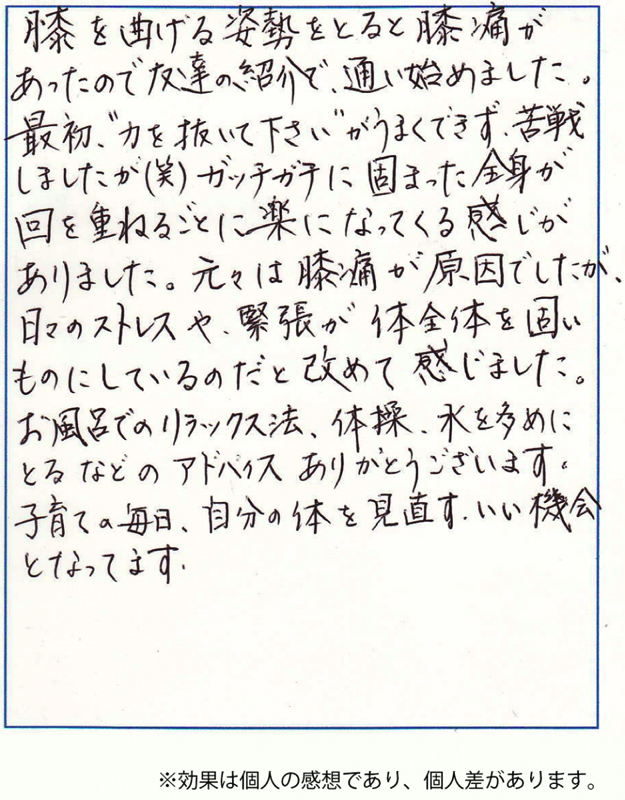 膝を曲げる姿勢をとると膝痛が
あったので友達の紹介で、通い始めました。
最初、“力を抜いて下さい”がうまくできず、苦戦
しましたが(笑)ガッチガチに固まった全身が
回を重ねるごとに楽になってくる感じが
ありました。元々は膝痛が原因でしたが、
日々のストレスや、緊張が体全体を固い
ものにしているのだと改めて感じました。
お風呂でのリラックス法、体操、水を多めに
とるなどのアドバイスありがとうございます。
子育ての毎日、自分の体を見直す、いい機会
となってます。
※効果は個人の感想であり、個人差があります。